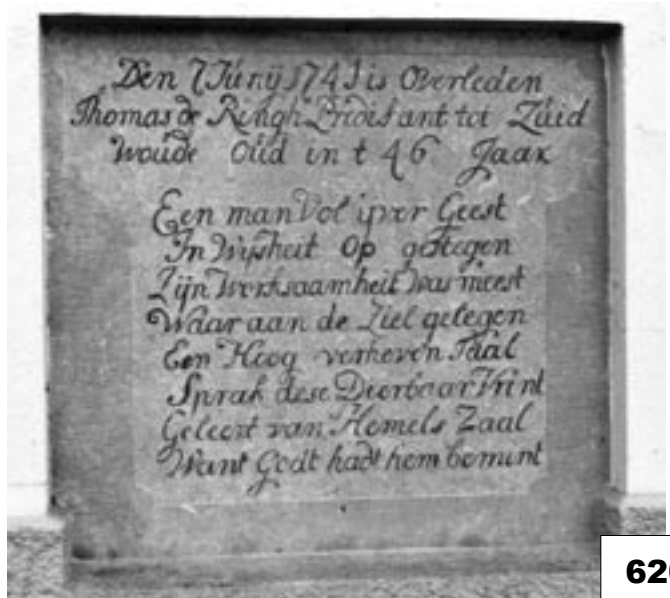 Den 7 Iúnÿ 1741 is Overleden
Thomas de Ringh Prdicant tot Zúid
woúde Oúd in t 46 Jaar
Een man Vol ijver Geest
In Wijsheit Op gestegen
Zijn Werksaamheit Was meest
Waar aan de Ziel gelegen
Een Hoog verheven Taal
Sprak dese Deerbaar Vrint
Geleert van Hemels Zaal
Want Godt hadt hem bemint